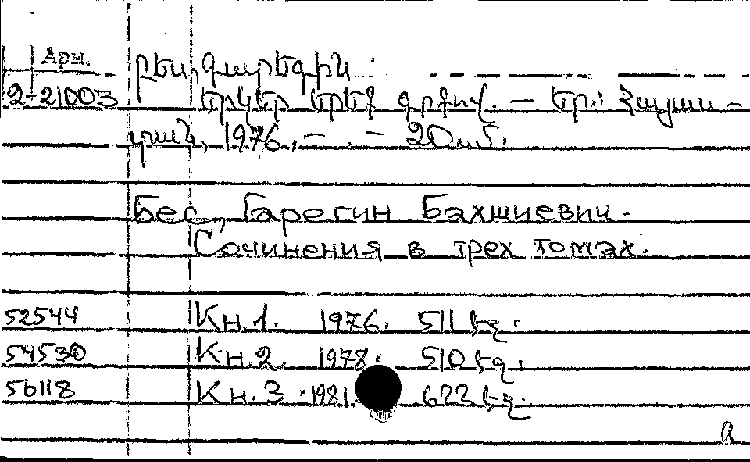 Арм.
2-21003
Բես, Գարեգին
Երկեր երեք գրքով. — Եր.: Հայաս-
տան, 1976. — . — 20սմ.
Бес, Гарегин Бахшиевич.
Сочинения в трех томах.
52544 Кн.1. 1976. 511 էջ.
54530 Кн.2. 1978. 510 էջ.
56118 Кн.3 1981. 622 էջ.